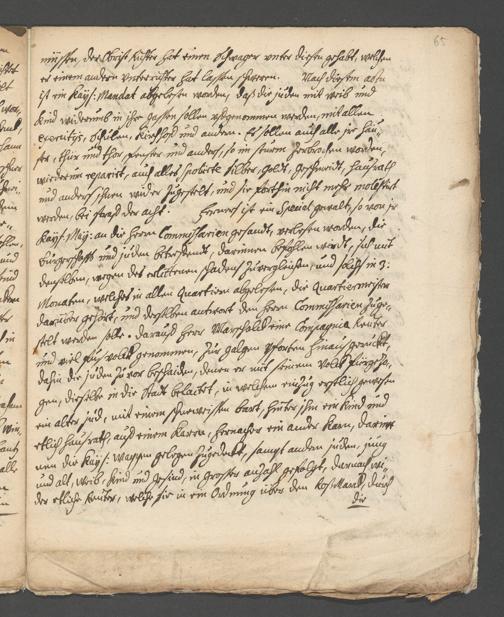 65
müssen, der Obrist Richter hat einen Schwager unter diesen gehabt, welchen
er einem andern Unterrichter hat lassen schweren. Nach diesem actu
ist ein Kays: Mandat abgelesen worden, daß die Juden mit weib und
Kind widerumb in ihre gassen sollen eingenommen werden, mit allen
exercitijs, Schulen, Kirchhof und andern. Es sollen auch alle ihr häu-
ser, thür und thor, fenster und anders, so im sturm zerbrochen worden,
wider repariert, auch alles spolierte Silber, goldt, geschmeidt, haußrath
und anders ihnen wider zugestelt, und sie forthin nicht mehr molestirt
werden, bei straff der acht. Hernach ist ein Special gewalt, so von ihr
Kays: May: an die herrn Commissarien gesandt, verlesen worden, die
Burgerschafft und Juden betreffendt, darinnen befohlen wirdt, sich mit
denselben, wegen des erlittenen schadens zu vergleichen, und solches in 3:
Monaten, welches in allen Quartiern abgelesen, die Quartiermeister
darüber gehört, und derselben antwort den herrn Commissarien zuge-
stelt werden solle. Darauf herr Marschalck eine Compagnia Reuter
und viel fuß volck genommen, zur galgen Pforten hinauß geruckt,
dahin die Juden zuvor bescheiden, denen er mit seinem volck fürgezo-
gen, dieselbe in die Statt belaitet, in welchem einzug erstlich gewesen
ein alter Jud, mit einem schneeweissen bart, hinder ihm ein Kind und
etlich haußrath, auf einem Karren, hernacher ein ander Karn, darin-
nen die Kays: wappen gelegen zugedeckt, sampt andern Juden, jung
und alt, weib, Kind und gesind, in grosser anzahl gefolgt, darnach wi-
der etliche Reuter, welche sie in ein Ordnung über den Roßmarck, durch
die